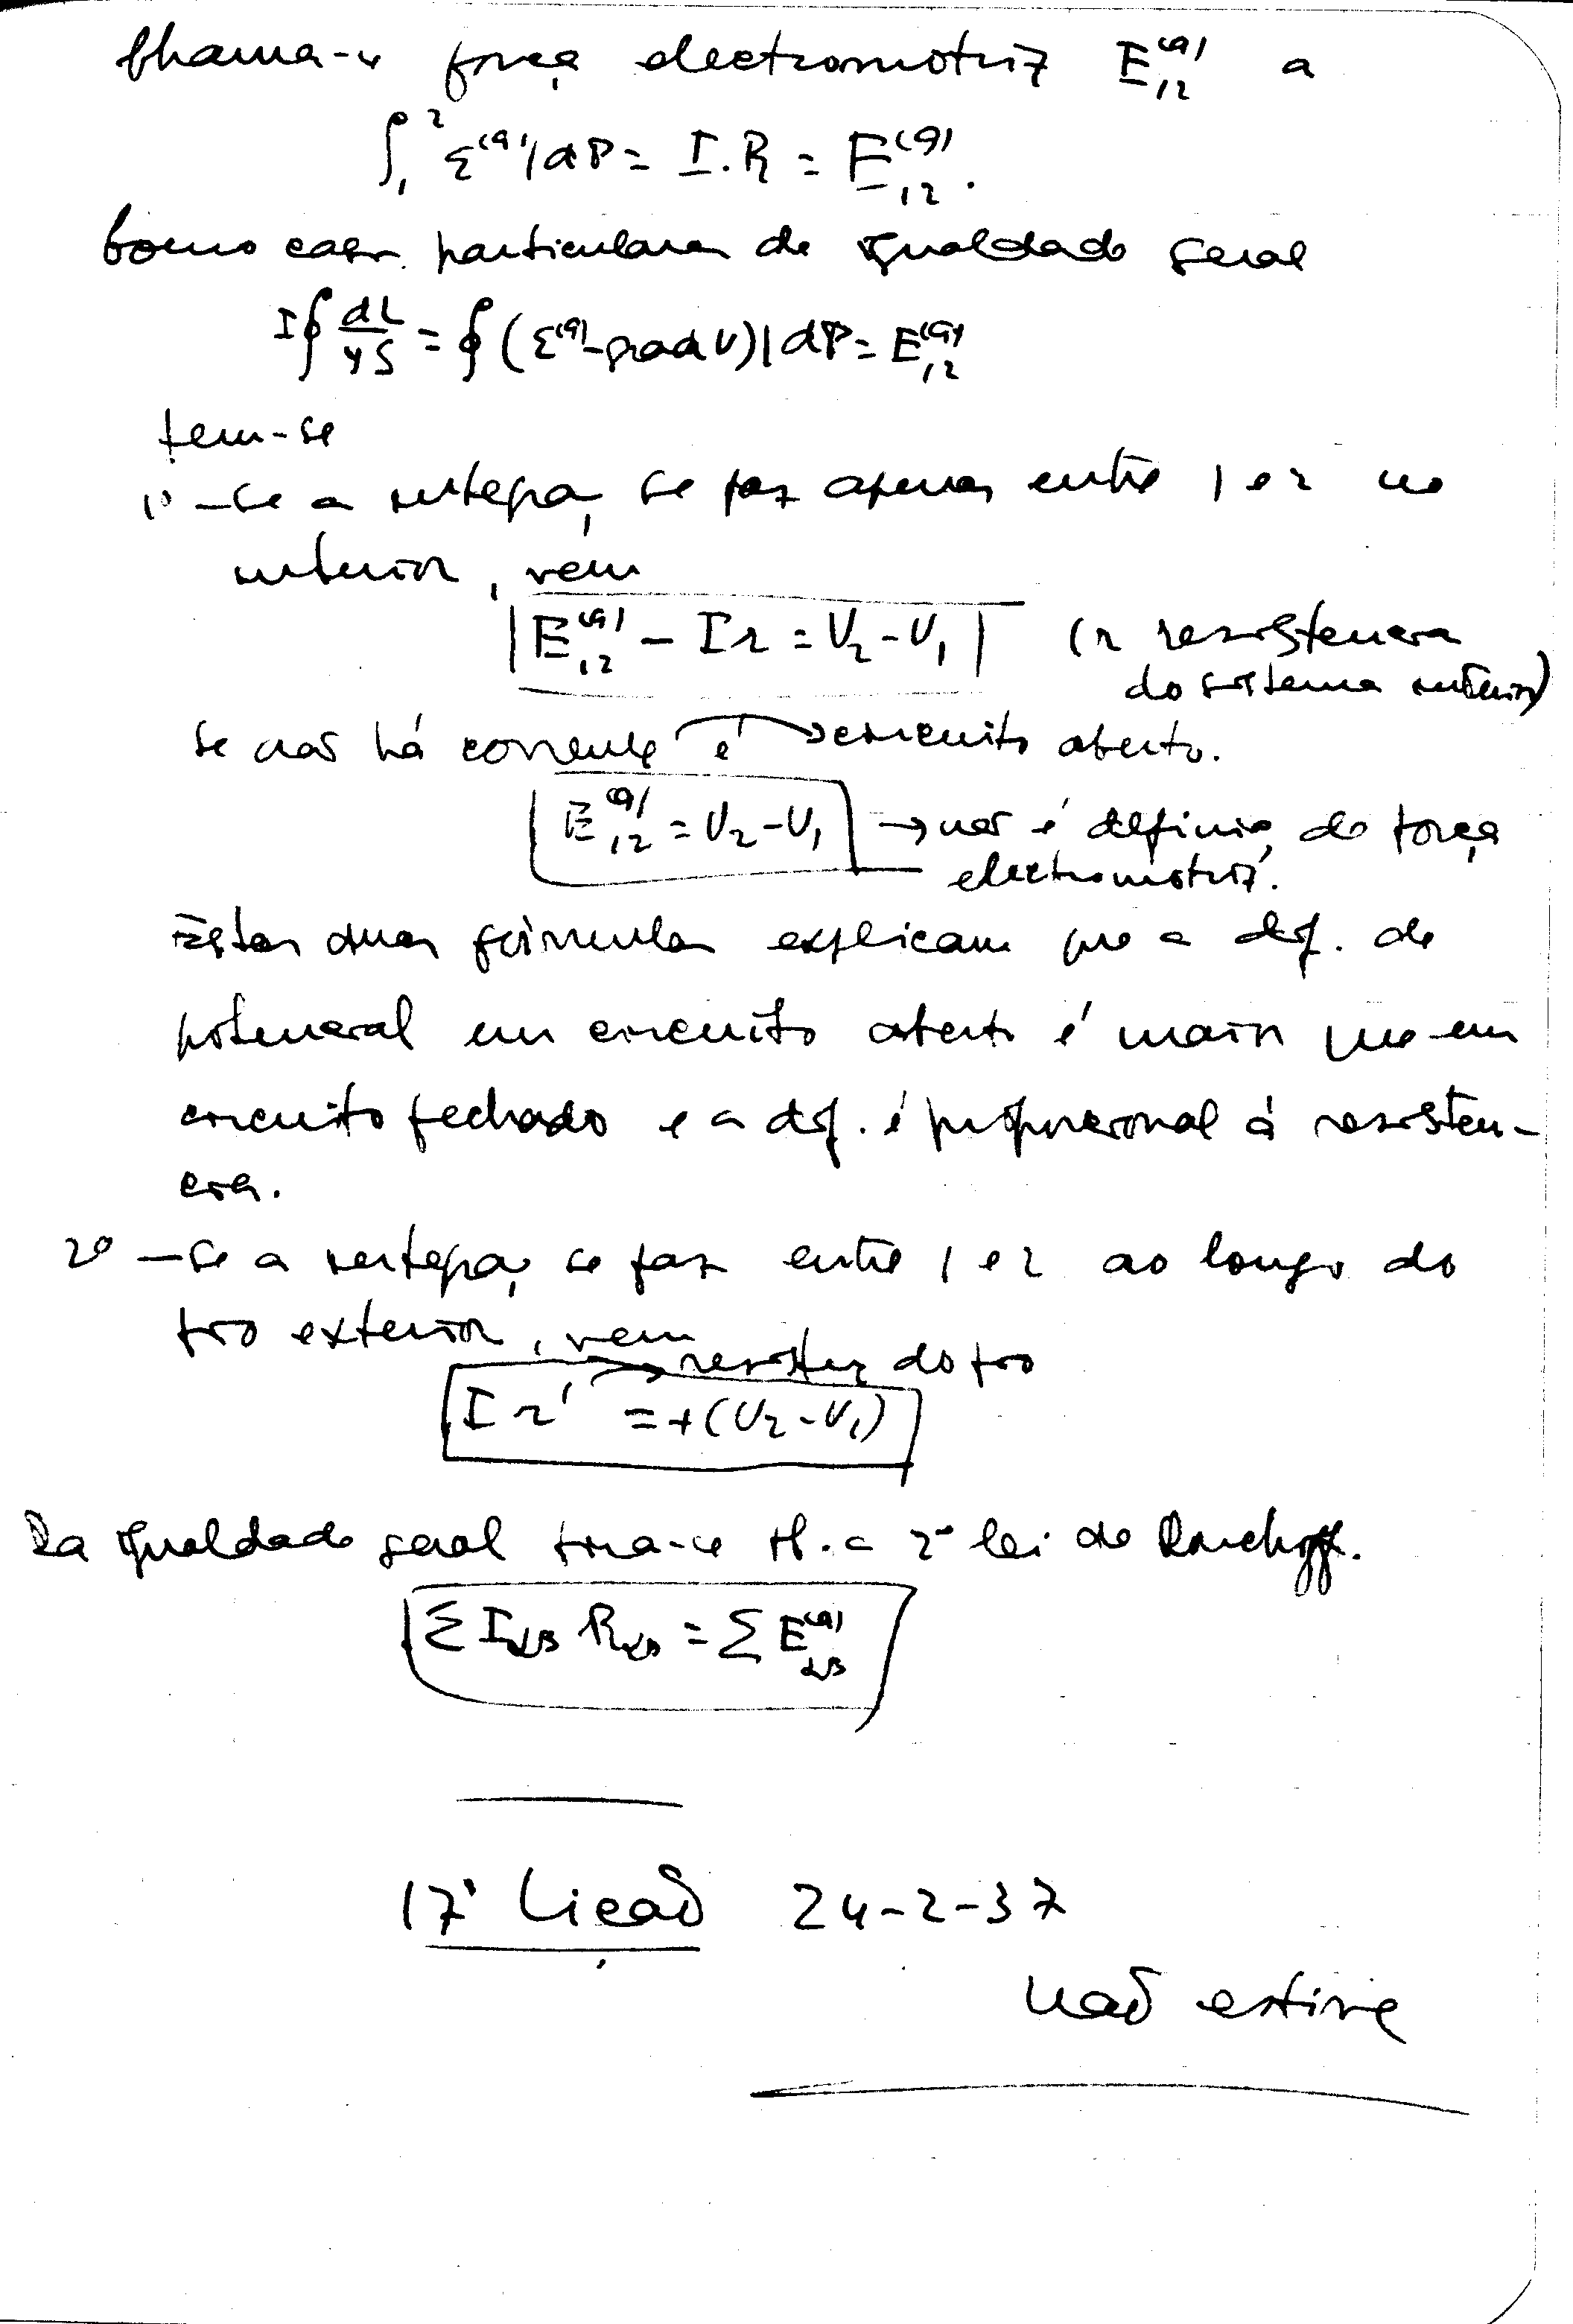 Chama-se força electromotriz E₁₂⁽ᵃ⁾ a
∫₁² ε⁽ᵃ⁾|dP = I.R = E₁₂⁽ᵃ⁾.
Como caso particular da igualdade geral
I∮ dL/γS = ∮(ε⁽ᵃ⁾-grad V)|dP = E₁₂⁽ᵃ⁾
tem-se
1º - se a integração se faz apenas entre 1 e 2 no
interior, vem
E₁₂⁽ᵃ⁾ - Ir = V₂-V₁ (r resistencia
do sistema interior)
Se não há corrente é → circuito aberto.
E₁₂⁽ᵃ⁾ = V₂-V₁ → não é definição de força
electromotriz.
Estas duas fórmulas explicam que a dif. de
potencial em circuito aberto é maior que em
circuito fechado e a dif. é proporcional à resisten-
cia.
2º - se a integração se faz entre 1 e 2 ao longo do
fio exterior, vem
→ resisten do fio
Ir' = +(V₂-V₁)
Da igualdade geral tira-se a 2ª lei de
Σ Iαβ Rαβ = Σ E⁽ᵃ⁾αβ
17ª Lição 24-2-37
Não estive